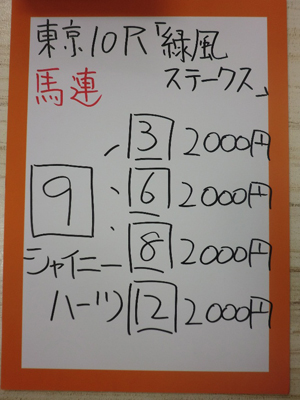 東京10R「緑風
ステークス」
馬連
3 2000円
6 2000円
9
8 2000円
シャイニー
ハーツ
12 2000円